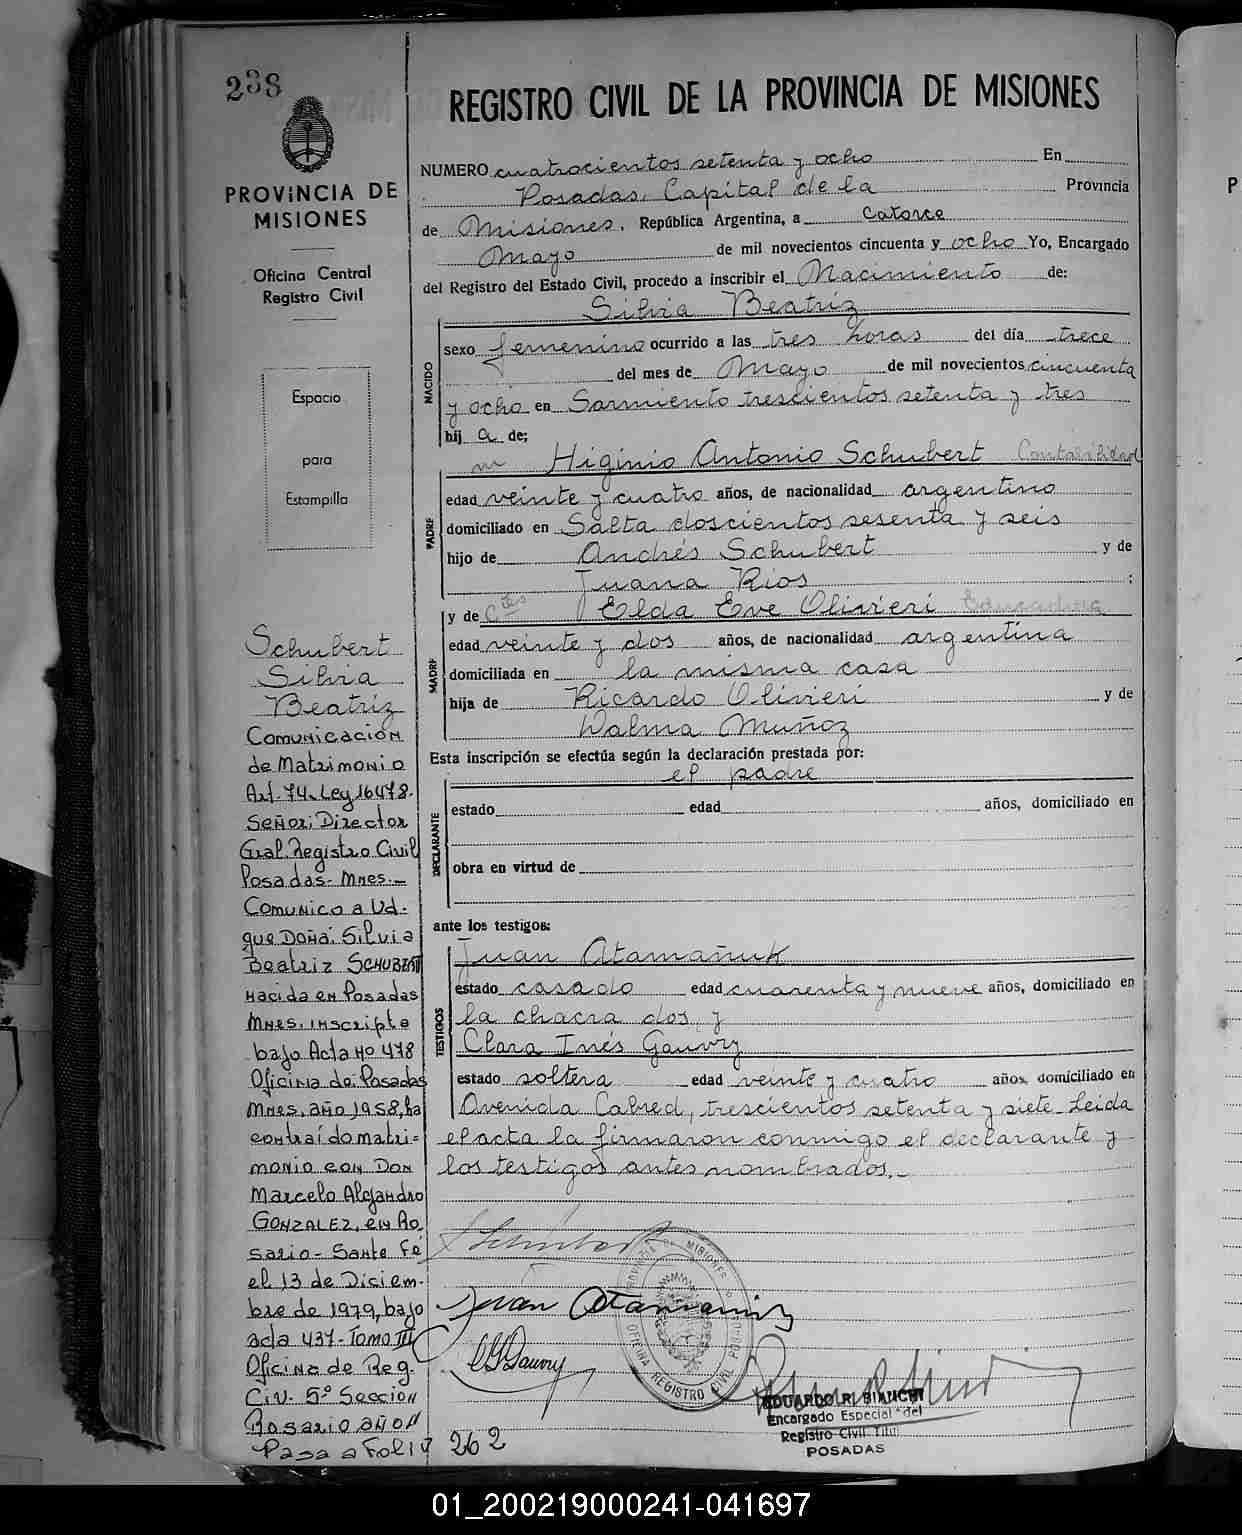 238
REGISTRO CIVIL DE LA PROVINCIA DE MISIONES
PROVINCIA DE
MISIONES
Oficina Central
Registro Civil
Espacio
para
Estampilla
NUMERO cuatrocientos setenta y ocho En
Posadas, Capital de la Provincia
de Misiones. República Argentina, a Catorce
Mayo de mil novecientos cincuenta y ocho Yo, Encargado
del Registro del Estado Civil, procedo a inscribir el Nacimiento de:
Silvia Beatriz
NACIDO
sexo femenino ocurrido a las tres horas del día trece
del mes de Mayo de mil novecientos cincuenta
y ocho en Sarmiento trescientos setenta y tres
hij a de;
Higinio Antonio Schubert Contabilidad
PADRE
edad veinte y cuatro años, de nacionalidad argentino
domiciliado en Salta doscientos sesenta y seis
hijo de Andrés Schubert y de
Juana Rios :
y de Elda Eve Olivieri
MADRE
edad veinte y dos años, de nacionalidad argentina
domiciliada en la misma casa
hija de Ricardo Olivieri y de
Walma Muñoz
Esta inscripción se efectúa según la declaración prestada por:
el padre
DECLARANTE
estado edad años, domiciliado en
obra en virtud de
ante los testigos:
Juan Atamañuk
TESTIGOS
estado casado edad cuarenta y nueve años, domiciliado en
la chacra dos, y
Clara Inés Gauvry
estado soltera edad veinte y cuatro años, domiciliado en
Avenida Cabred, trescientos setenta y siete. Leida
el acta la firmaron conmigo el declarante y
los testigos antes nombrados.-
Schubert
Silvia
Beatriz
Comunicación
de Matrimonio
Art. 74. Ley 16478.
Señor: Director
Gral. Registro Civil
Posadas- Mnes.-
Comunico a Ud.
que Doña: Silvia
Beatriz SCHUBERT
nacida en Posadas
Mnes. inscripta
bajo Acta No 478
Oficina de: Posadas
Mnes. año 1958, ha
contraído matri=
monio con Don
Marcelo Alejandro
GONZALEZ, en Ro.
sario- Santa Fé
el 13 de Diciem-
bre de 1979, bajo
acta 437- Tomo III
Oficina de Reg.
Civ. 5º Sección
Rosario año //
Pasa a Folio 262
Juan Atamañuk
PROVINCIA DE MISIONES
OFICINA REGISTRO CIVIL POSADAS
EDUARDO R. BIANCHI
Encargado Especial del
Registro Civil
POSADAS
P
01_200219000241-041697